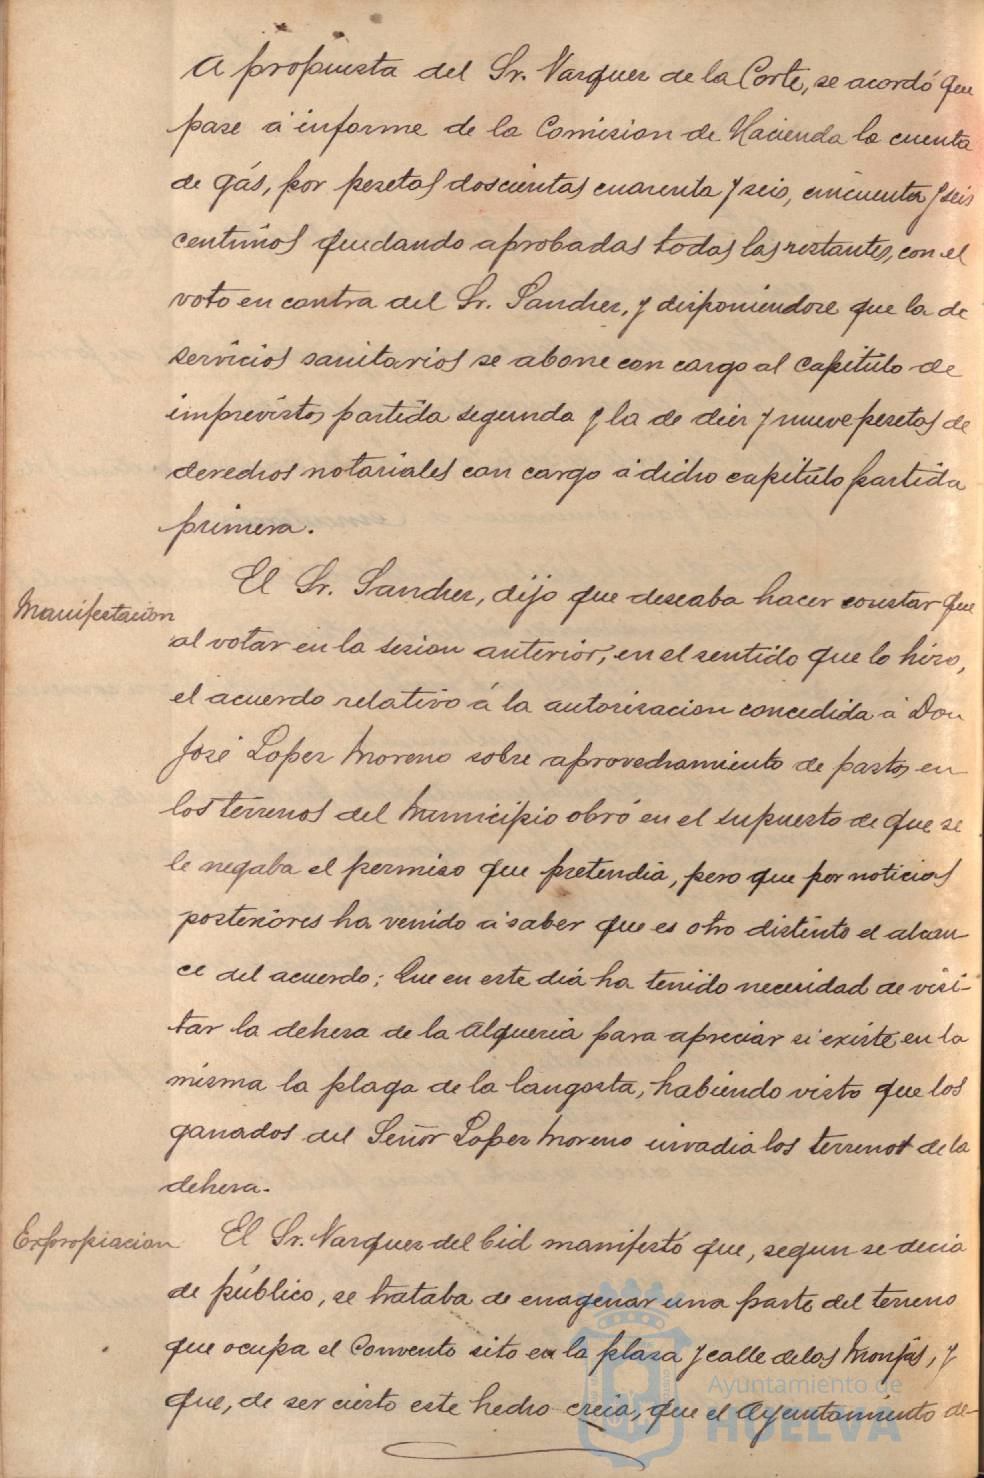 A propuesta del Sr. Vazquez de la Corte, se acordó que
pase á informe de la Comision de Hacienda la cuenta
de gás, por pesetas doscientas cuarenta y seis, cincuenta y seis
centimos quedando aprobadas todas las restantes, con el
voto en contra del Sr. Sanchez, y disponiendose que la de
servicios sanitarios se abone con cargo al capitulo de
imprevistos, partida segunda y la de diez y nueve pesetas de
derechos notariales con cargo á dicho capitulo partida
primera.
Manifestacion
El Sr. Sanchez, dijo que deseaba hacer constar que
al votar en la sesion anterior, en el sentido que lo hizo,
el acuerdo relativo á la autorizacion concedida á Don
José Lopez Moreno sobre aprovechamiento de pastos en
los terrenos del Municipio obró en el supuesto de que se
le negaba el permiso que pretendia, pero que por noticias
posteriores ha venido á saber que es otro distinto el alcan-
ce del acuerdo; Que en este dia ha tenido necesidad de visi-
tar la dehesa de la Alqueria para apreciar si existe en la
misma la plaga de la langosta, habiendo visto que los
ganados del Señor Lopez Moreno invadia los terrenos de la
dehesa.
Expropiacion
El Sr. Vazquez del Cid manifestó que, segun se decia
de público, se trataba de enagenar una parte del terreno
que ocupa el Convento sito en la plaza y calle de las Monjas, y
que, de ser cierto este hecho creia, que el Ayuntamiento de-
Ayuntamiento de
HUELVA